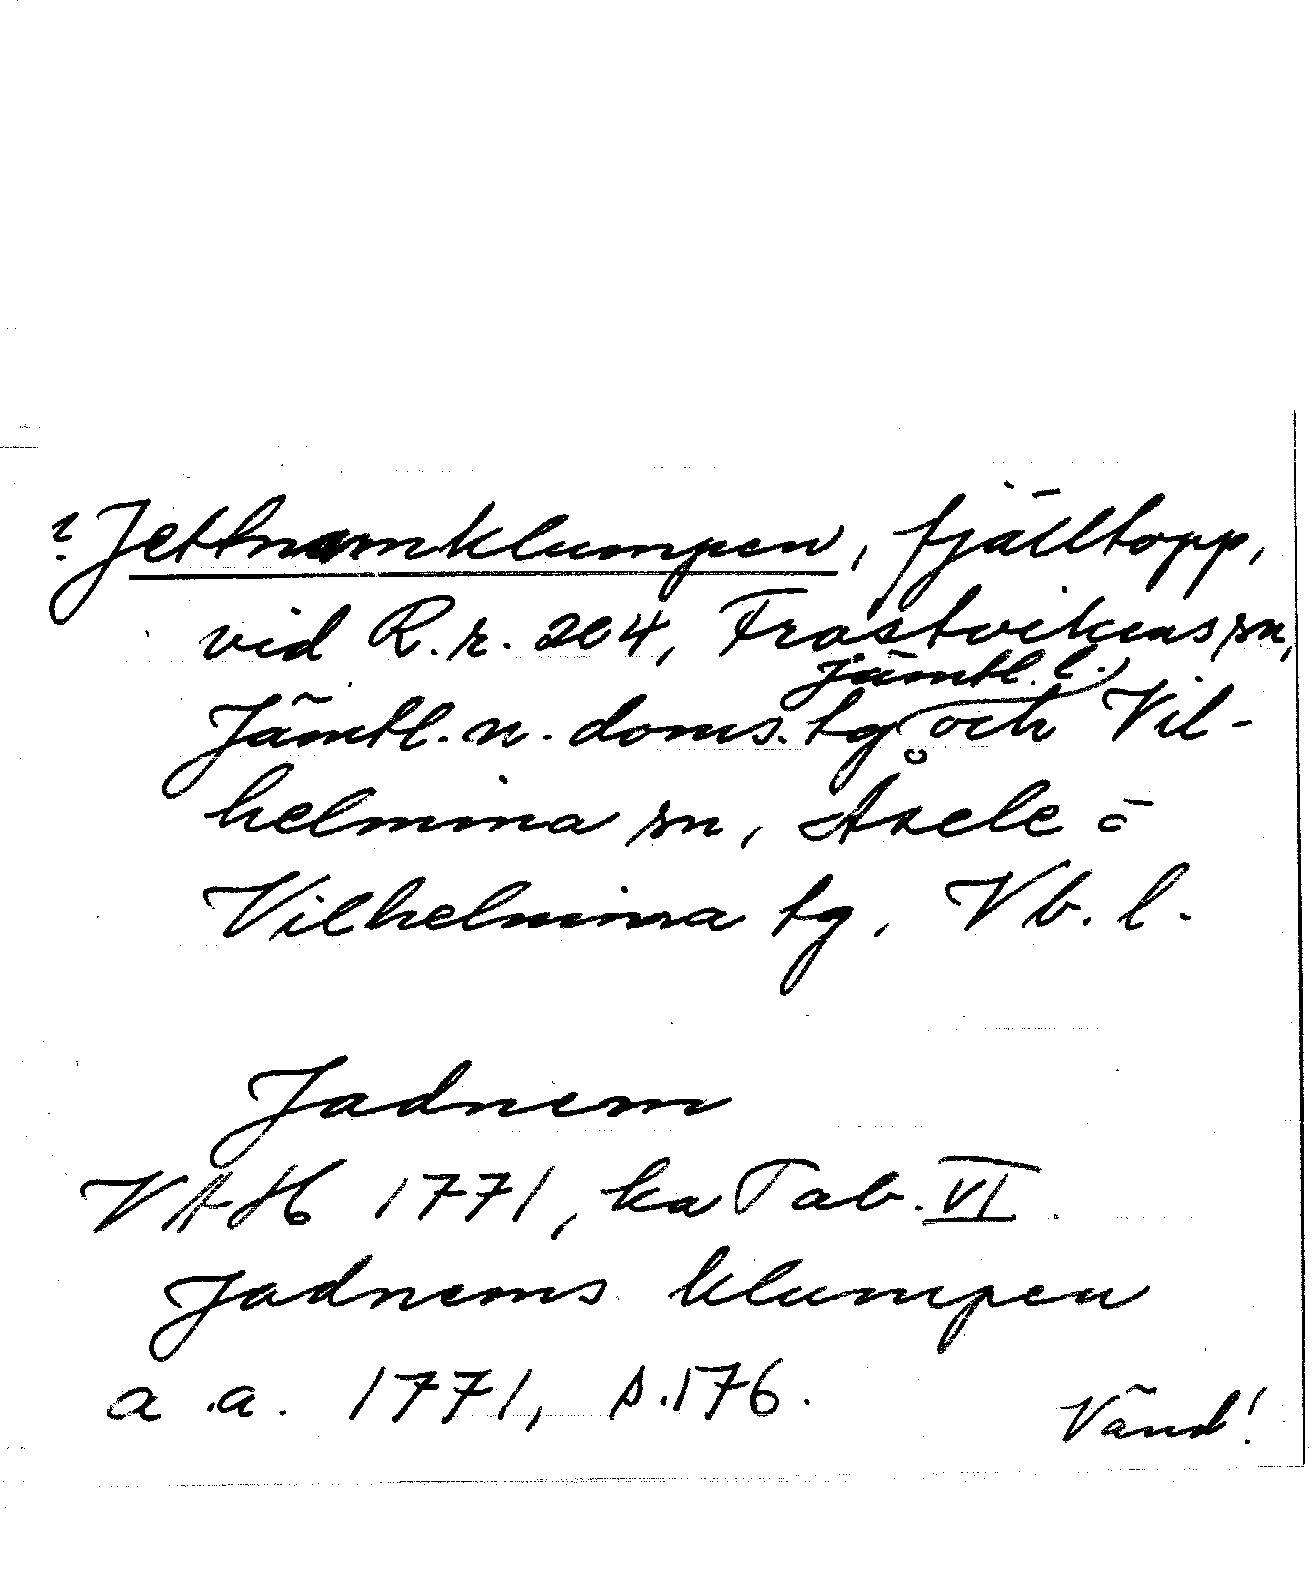 ? Jettnamklumpen, fjälltopp,
vid R.r. 204, Frostvikens sn,
Jämtl. n. doms. tg, Jämtl. l. och Vil-
helmina sn, Åsele o
Vilhelmina tg, Vb. l.
Jadnem
VAH 1771, ka Tab. VI.
Jadnems klumpen
a. a. 1771, s. 176.
Vänd!